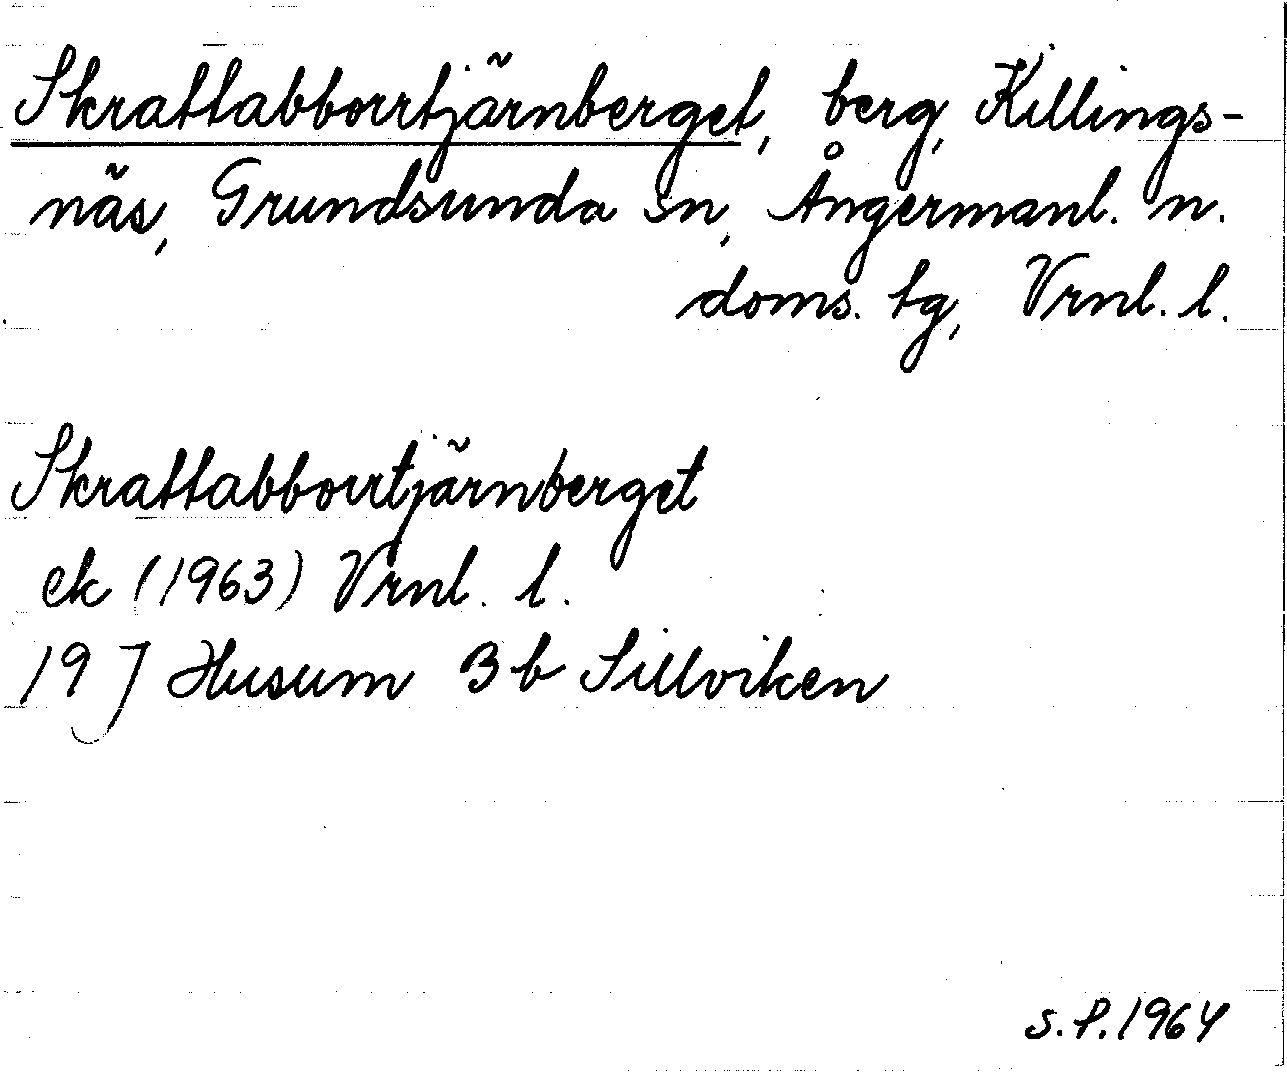 Skrattabborrtjärnberget, berg, Killings-
näs, Grundsunda sn, Ångermanl. n.
doms. tg, Vrnl. l.
Skrattabborrtjärnberget
ek (1963) Vrnl. l.
19 J Husum 3 b Sillviken
S.P. 1964